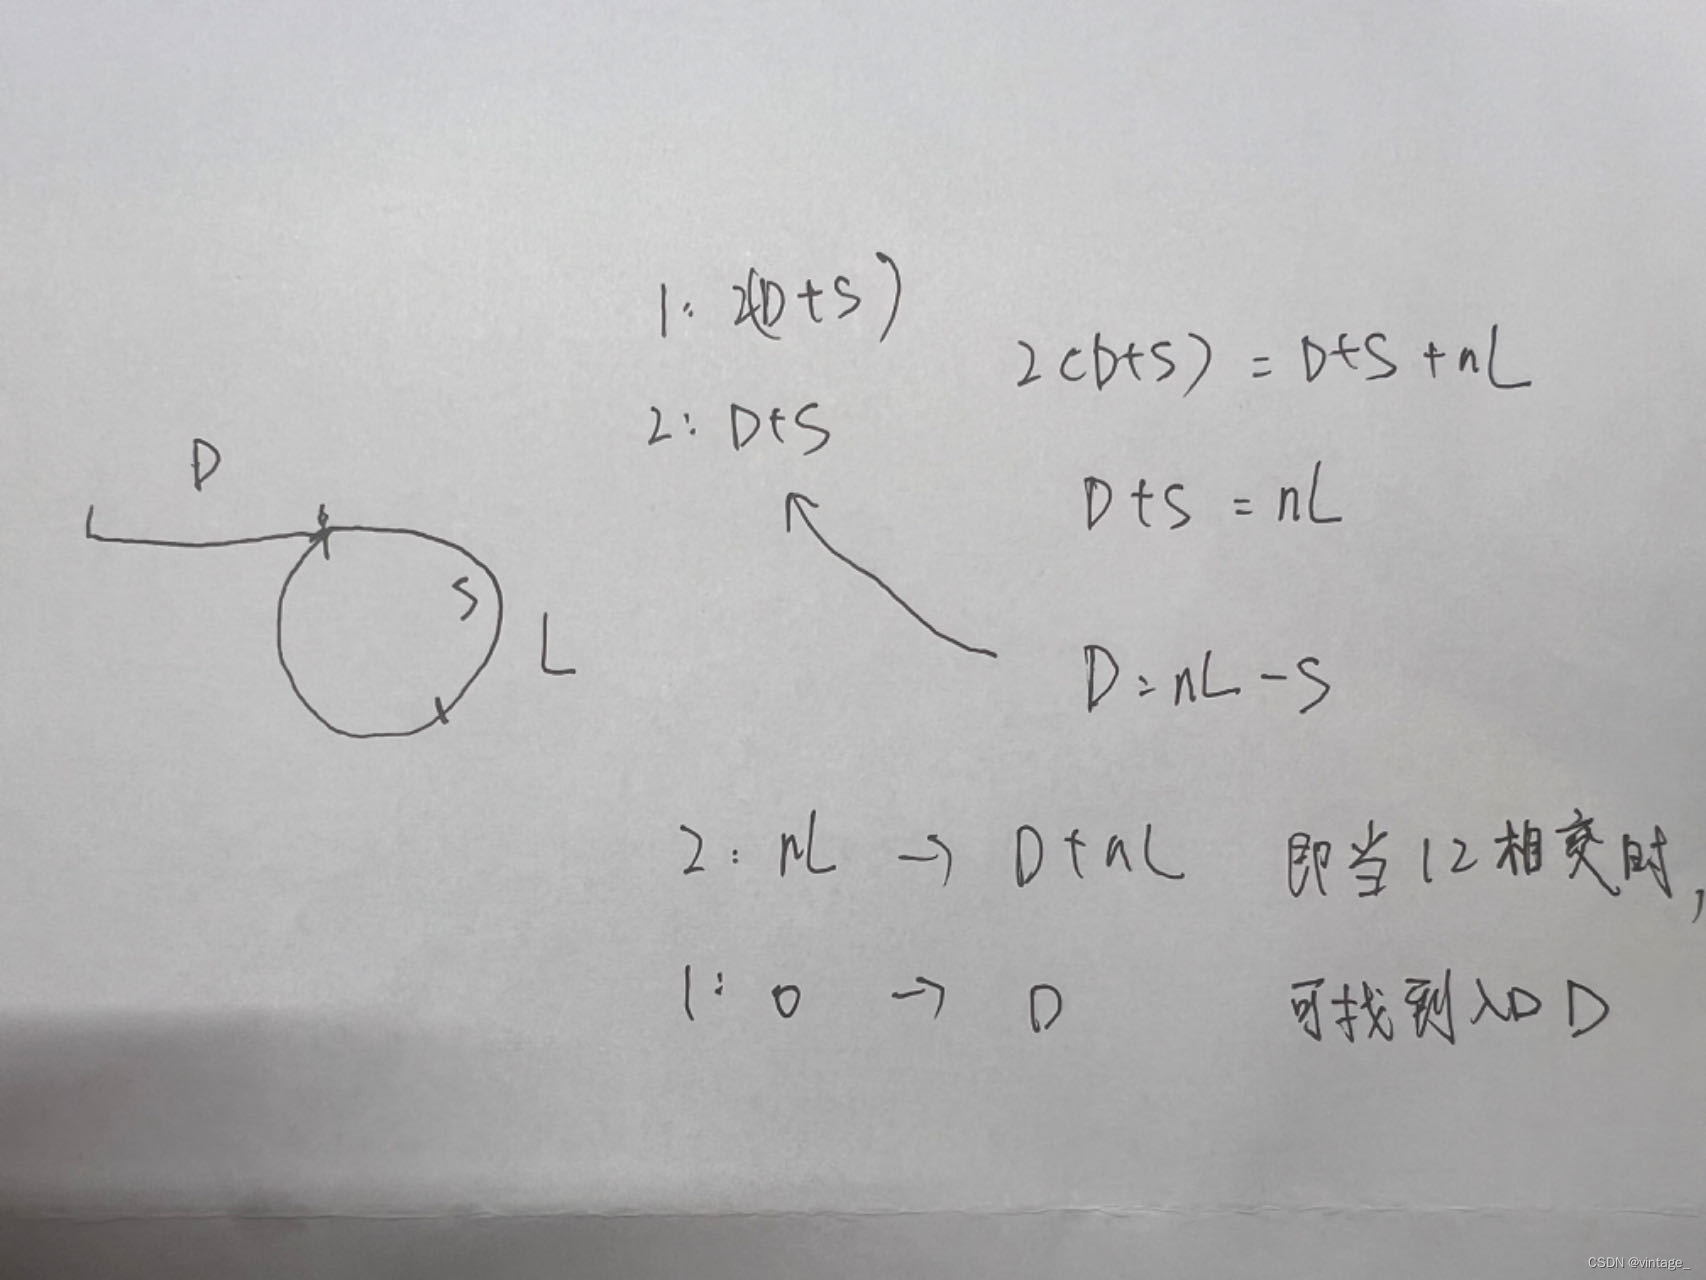 1: 2(D+S)
2(D+S) = D+S+nL
2: D+S
D
D+S = nL
S
L
D=nL-S
2: nL → D+nL 即当12相交时,
1: 0 → D 可找到入口D
CSDN @vintage_